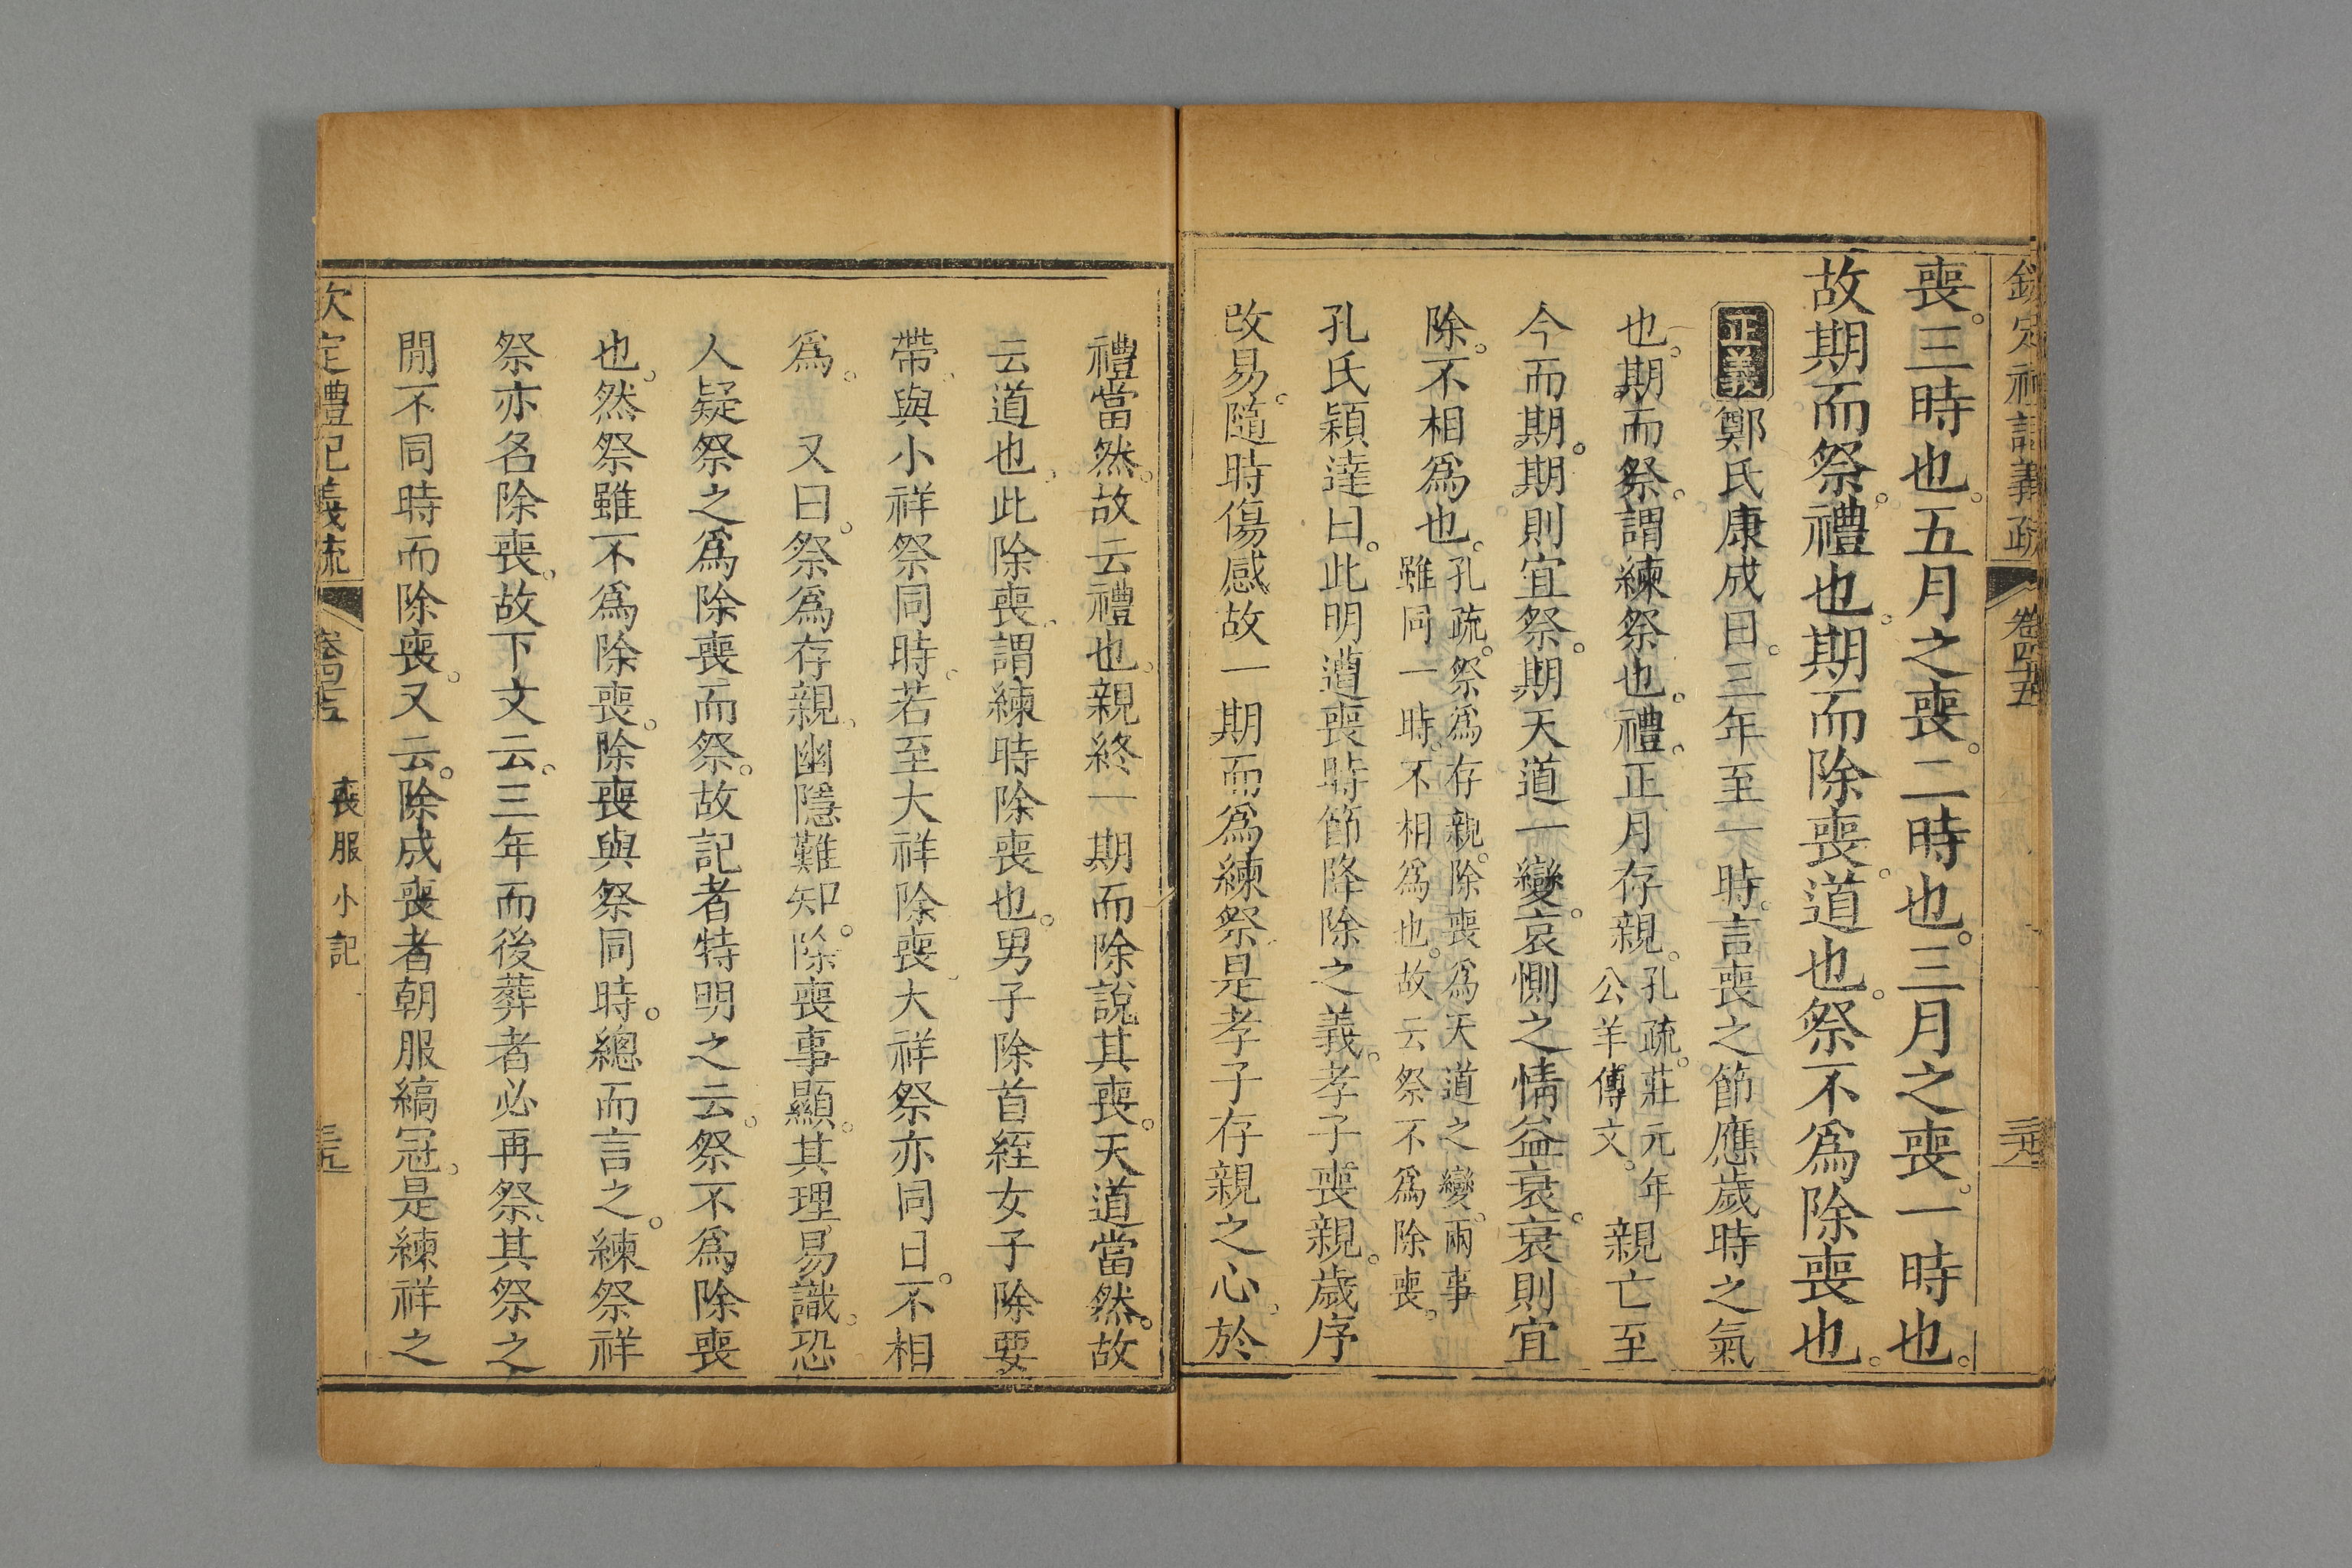 欽定禮記義疏　卷四十五
喪。三時也。五月之喪。二時也。三月之喪。一時也。
故期而祭。禮也。期而除喪。道也。祭不爲除喪也。
正義鄭氏康成曰。三年至一時。言喪之節應歲時之氣
也。期而祭。謂練祭也。禮。正月存親。孔疏。莊元年公羊傳文。親亡至
今而期。期則宜祭。期天道一變。哀惻之情益衰。衰則宜
除。不相爲也。孔疏。祭爲存親。除喪爲天道之變。兩事雖同一時。不相爲也。故云祭不爲除喪。
孔氏穎達曰。此明遭喪時節降除之義。孝子喪親。歲序
改易。隨時傷感。故一期而爲練祭。是孝子存親之心。於
禮當然。故云禮也。親終一期而除說其喪。天道當然。故
云道也。此除喪。謂練時除喪也。男子除首絰女子除要
帶。與小祥祭同時。若至大祥除喪。大祥祭亦同日。不相
爲。　又曰。祭爲存親。幽隱難知。除喪事顯。其理易識。恐
人疑祭之爲除喪而祭。故記者特明之云。祭不爲除喪
也。然祭雖不爲除喪。除喪與祭同時。總而言之。練祭祥
祭亦名除喪。故下文云。三年而後葬者必再祭。其祭之
閒不同時而除喪。又云。除成喪者朝服縞冠。是練祥之
欽定禮記義疏　卷四十五　喪服小記